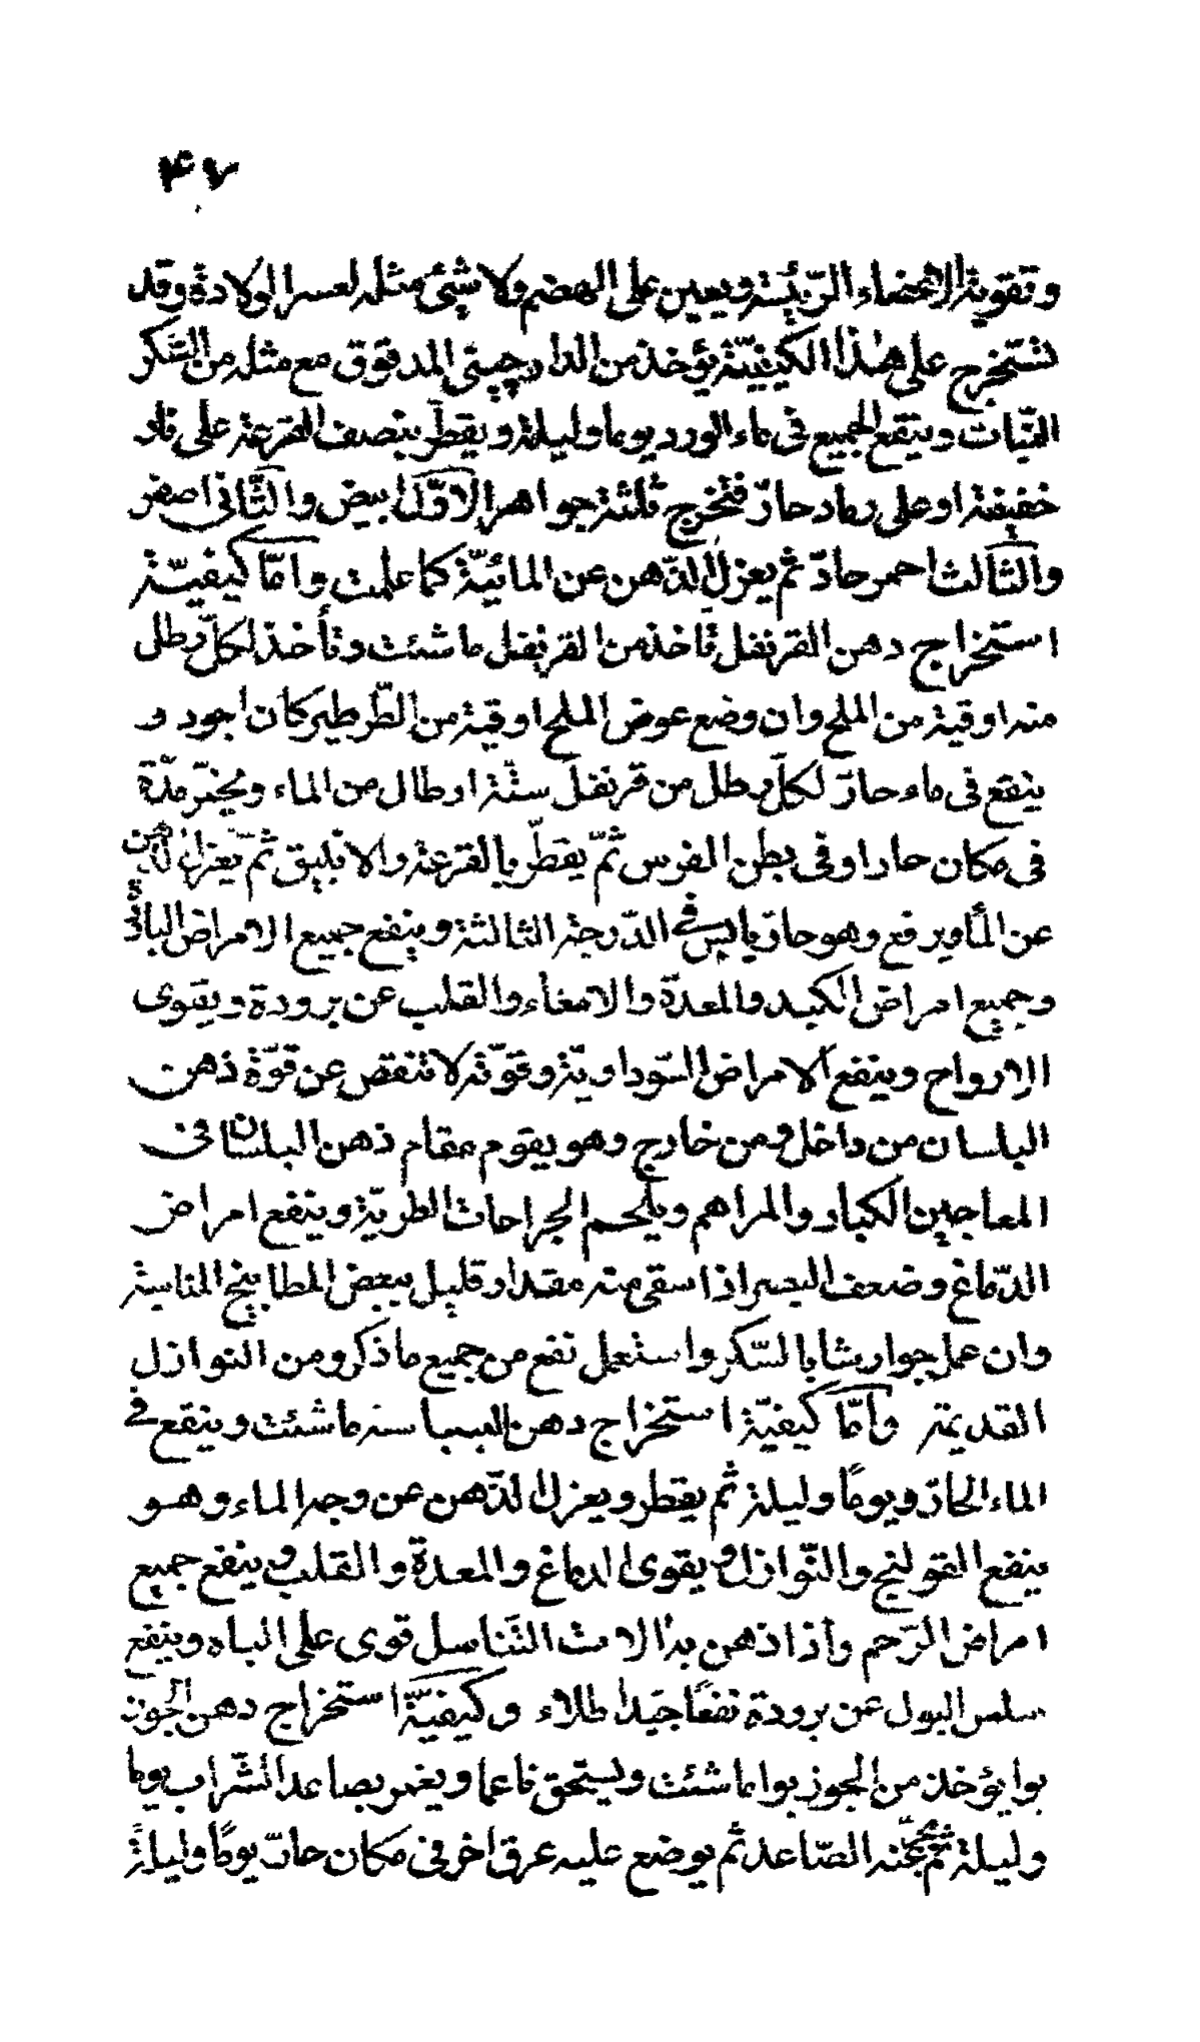 ۴۷
وتقوية الاعضاء الرّئيسة ويعين على الهضم ولا شيئ مثله لعسر الولادة وقد
تستخرج على هذا الكيفيّة يؤخذ من الدارچينى المدقوق مع مثله من السّكر
النّبات وينقع الجميع فى ماء الورد يوما وليلة ويقطّر بنصف القرعة على نار
خفيفة او على رماد حارّ فتخرج ثلثة جواهر الاوّل ابيض والثّانى اصفر
والثّالث احمر حادّ ثم يعزل الدّهن عن المائيّة كما علمت وامّا كيفيّة
استخراج دهن القرنفل تأخذ من القرنفل ما شئت وتأخذ لكلّ رطل
منه اوقية من الملح وان وضع عوض الملح اوقية من الطّرطير كان اجود و
ينقع فى ماء حارّ لكلّ رطل من قرنفل ستّة ارطال من الماء ويخمّر مدّة
فى مكان حار او فى بطن الفرس ثمّ يقطّر بالقرعة والانبيق ثمّ يعزل الدّهن
عن الماء ويرفع وهو حارّ يابس فى الدّرجة الثالثة وينفع جميع الامراض الباردة
وجميع امراض الكبد والمعدة والامعاء والقلب عن برودة ويقوى
الارواح وينفع الامراض السّوداويّة وقوّته لا تنقص عن قوّة ذهن
البلسان من داخل ومن خارج وهو يقوم مقام ذهن البلسان فى
المعاجين الكبار والمراهم ويلحم الجراحات الطريّة وينفع امراض
الدّماغ وضعف البصر اذا سقى منه مقدار قليل ببعض المطابيخ المناسبة
وان عمل جوارشا بالسّكر واستعمل نفع من جميع ما ذكر ومن النوازل
القديمة وامّا كيفيّة استخراج دهن البسباسه ما شئت وينقع فى
الماء الحارّ ويومًا وليلة ثم يقطر ويعزل الدّهن عن وجه الماء وهو
ينفع القولنج والنّوازل ويقوى الدماغ والمعدة والقلب وينفع جميع
امراض الرّحم واذا ذهن به الات التّناسل قوى على الباه وينفع
سلس البول عن برودة نفعًا جيّدا طلاء وكيفيّة استخراج دهن الجوز
بوا يؤخذ من الجوز بوا ما شئت ويستحق ناعما ويغمر بصاعد الشّراب يوما
وليلة ثمّ الصّاعد ثم يوضع عليه عرق اخر فى مكان حارّ يومًا وليلةً